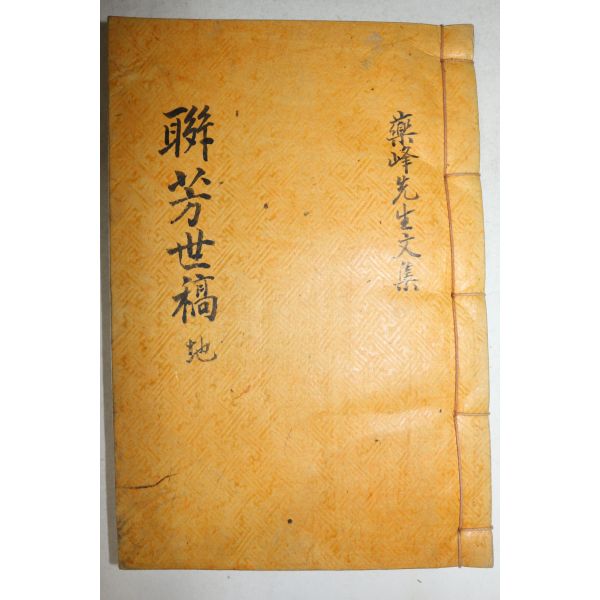 藥峰先生文集
聯芳世稿
地